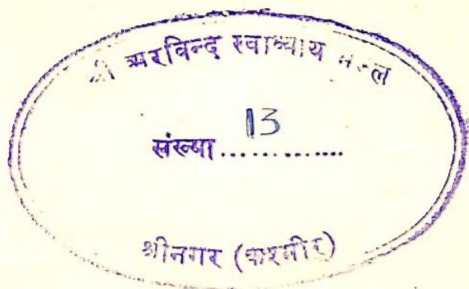 श्री अरविन्द स्वाध्याय मण्डल
संख्या 13 .............
श्रीनगर (कश्मीर)